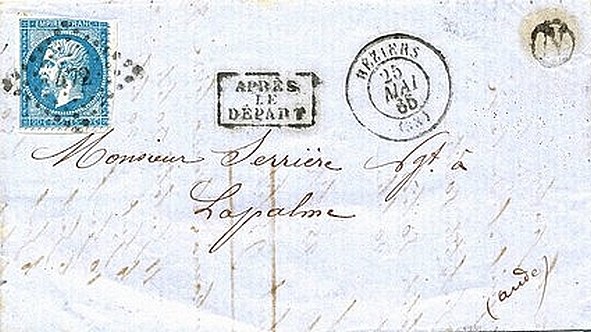 EMPIRE FRANC
APRÈS
LE
DÉPART
BÉZIERS
25
MAI
(33)
N
Monsieur Serrière Ngt. à
Lapalme
(aude)